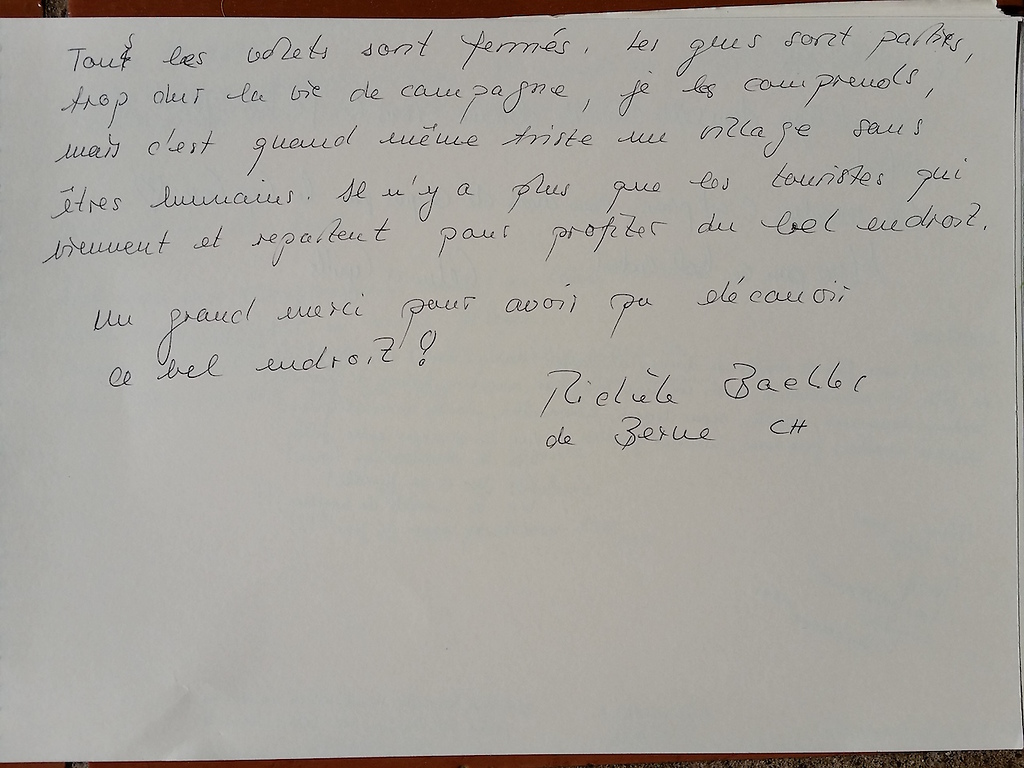 Tous les volets sont fermés. Les gens sont parties,
trop dur la vie de campagne, je les comprends,
mais c'est quand même triste un village sans
êtres humains. Il n'y a plus que les touristes qui
viennent et repartent pour profiter du bel endroit.
Un grand merci pour avoir pu découvrir
ce bel endroit !
de Berne CH